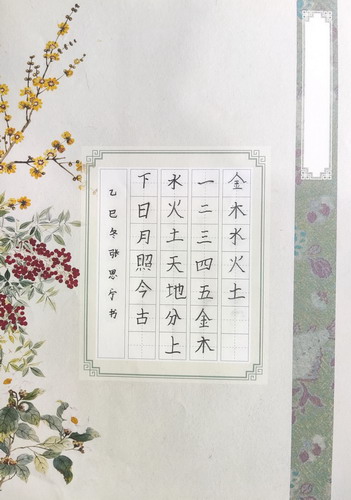 金木水火土
一二三四五金木
水火土天地分上
下日月照今古
乙巳冬张思宁书